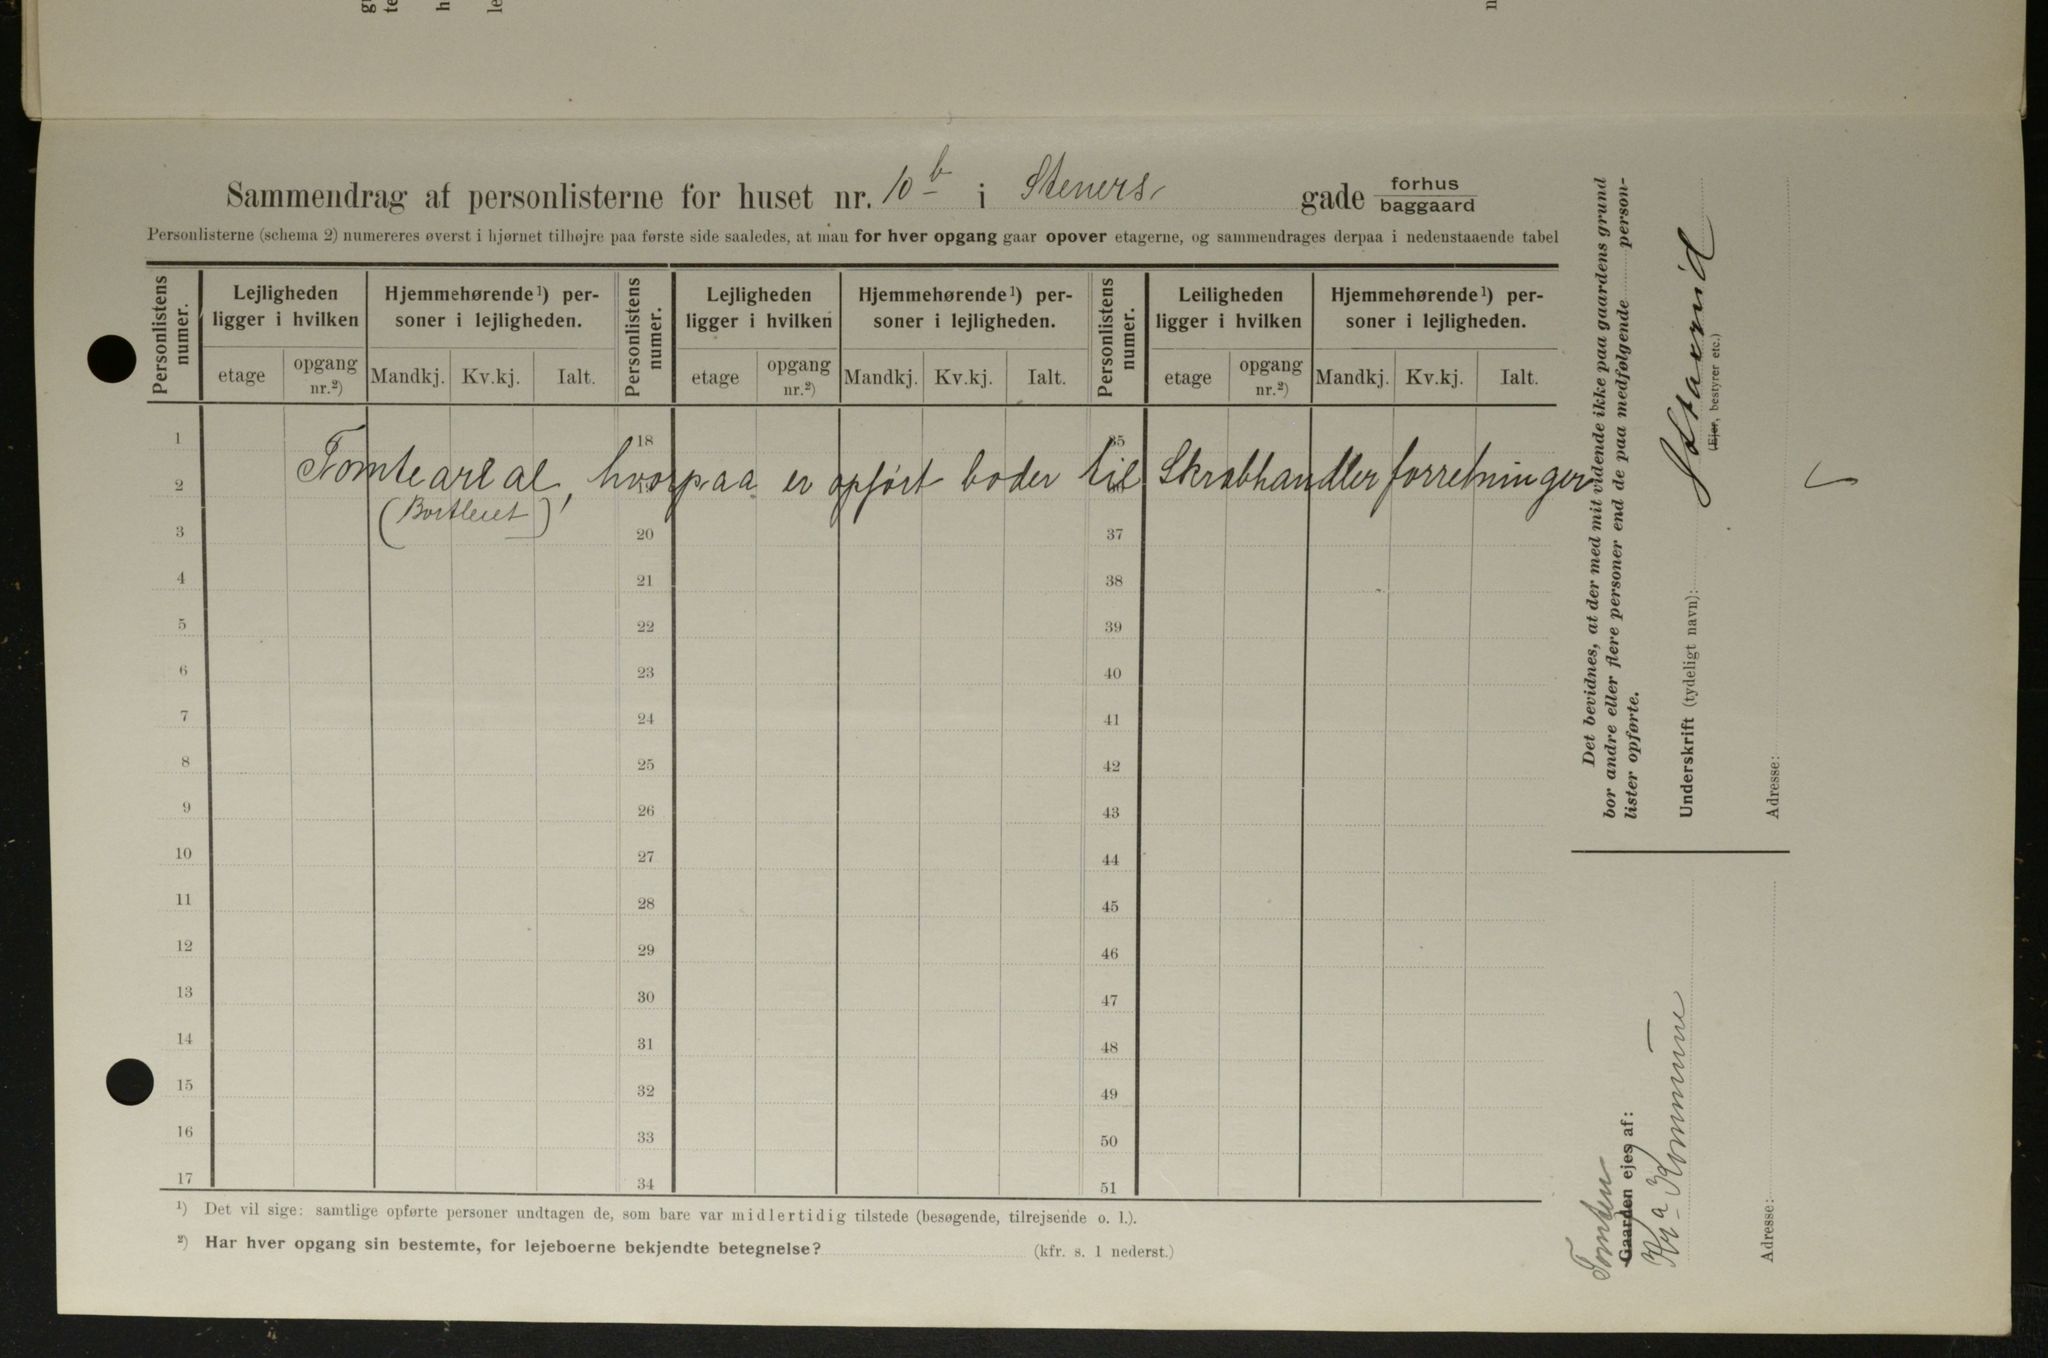 Sammendrag af personlisterne for huset nr. 10 b i Steners gade forhus
baggaard
Personlisterne (schema 2) numereres øverst i hjørnet tilhøjre paa første side saaledes, at man for hver opgang gaar opover etagerne, og sammendrages derpaa i nedenstaaende tabel
Personlistens numer. Lejligheden ligger i hvilken Hjemmehørende ¹) personer i lejligheden. Personlistens numer. Lejligheden ligger i hvilken Hjemmehørende ¹) personer i lejligheden. Personlistens numer. Leiligheden ligger i hvilken Hjemmehørende ¹) personer i lejligheden.
etage opgang nr.²) Mandkj. Kv.kj. Ialt. etage opgang nr.²) Mandkj. Kv.kj. Ialt. etage opgang nr.²) Mandkj. Kv.kj. Ialt.
1 18 35
Tomteareal, hvorpaa er opført boder til Skrabhandlerforretninger
2
(Bortleiet)
3 20 37
4 21 38
5 22 39
6 23 40
7 24 41
8 25 42
9 26 43
10 27 44
11 28 45
12 29 46
13 30 47
14 31 48
15 32 49
16 33 50
17 34 51
¹) Det vil sige: samtlige opførte personer undtagen de, som bare var midlertidig tilstede (besøgende, tilrejsende o. l.).
²) Har hver opgang sin bestemte, for lejeboerne bekjendte betegnelse? (kfr. s. 1 nederst.)
Det bevidnes, at der med mit vidende ikke paa gaardens grund
bor andre eller flere personer end de paa medfølgende person-
lister opførte.
Underskrift (tydeligt navn):
(Ejer, bestyrer etc.)
Adresse:
Tomten
Gaarden ejes af:
Kr.a Kommune
Adresse: